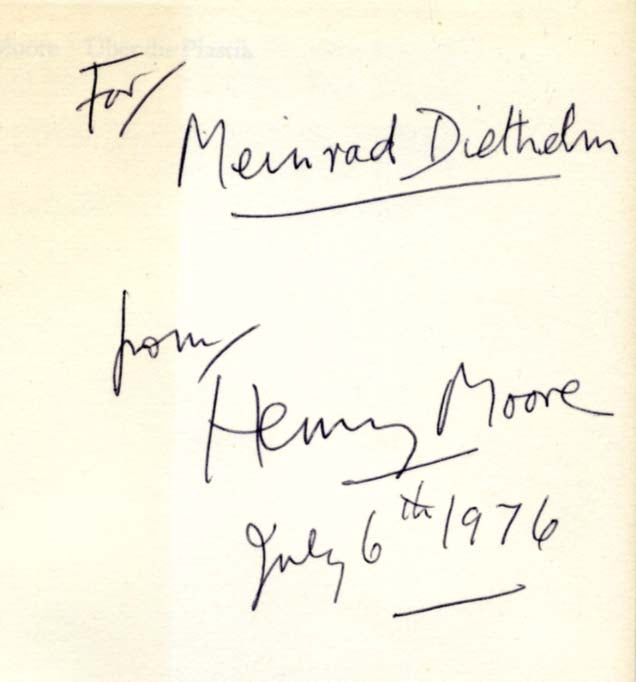 Moore Über die Plastik
For/
Meinrad Diethelm
from/
Henry Moore
July 6th 1976